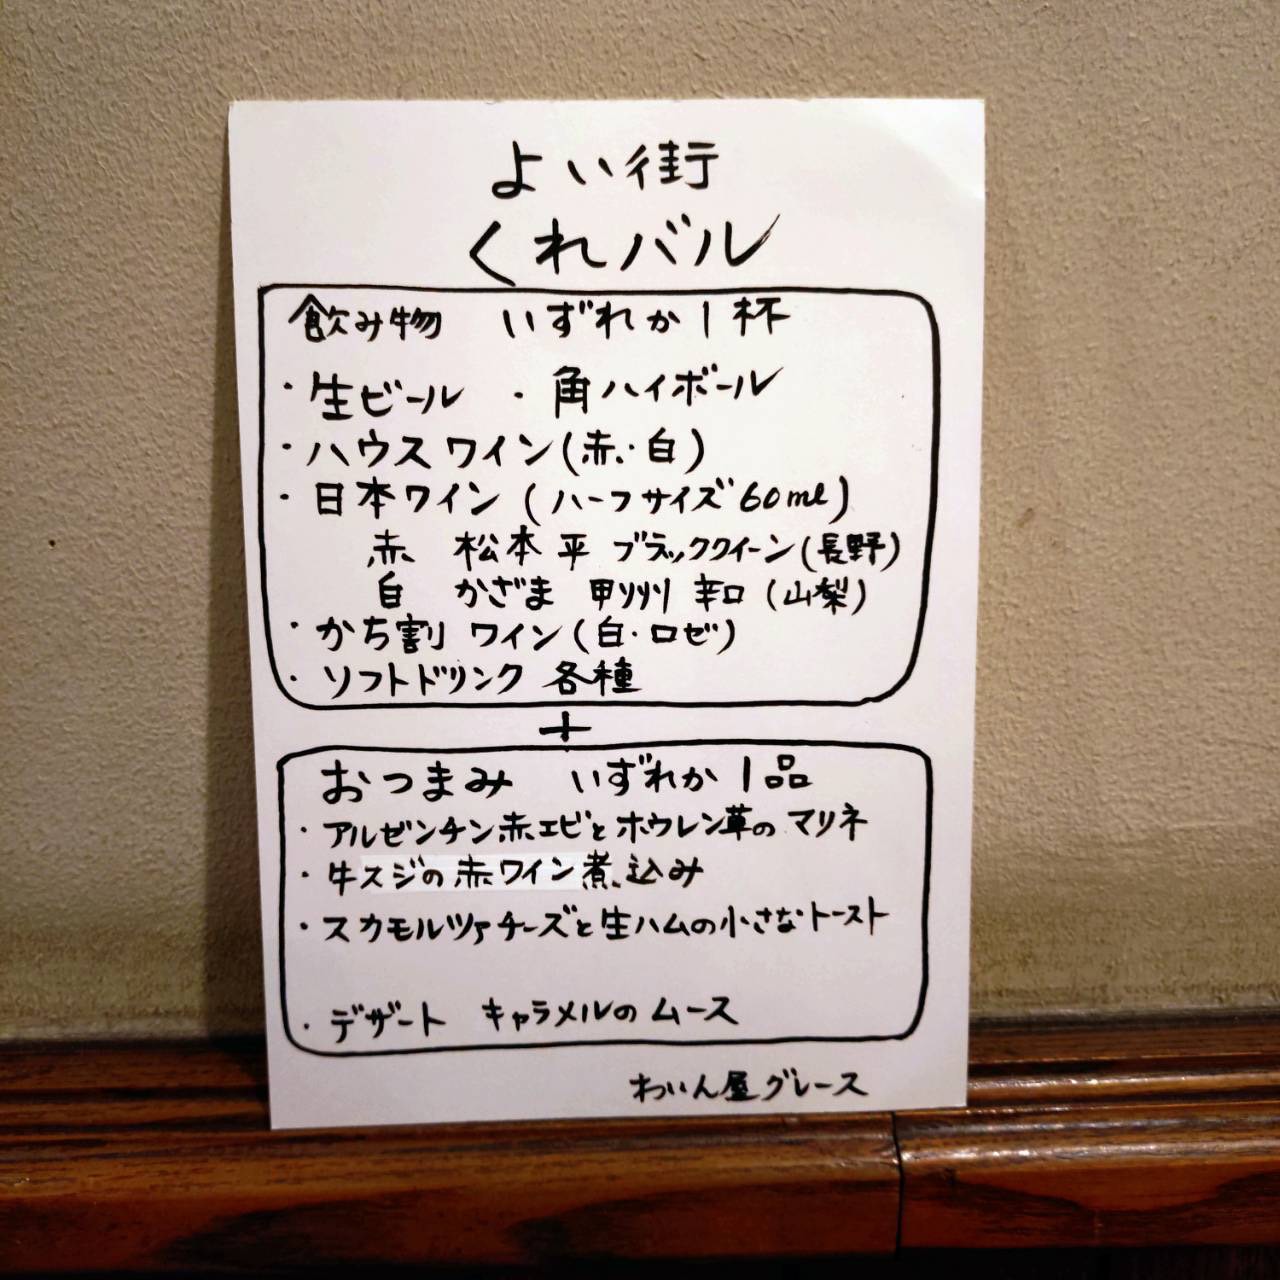 よい街
くれバル
飲み物　いずれか1杯
・生ビール　・角ハイボール
・ハウスワイン(赤・白)
・日本ワイン (ハーフサイズ60ml)
赤　松本平 ブラッククイーン(長野)
白　かざま 甲州 辛口 (山梨)
・かち割 ワイン(白・ロゼ)
・ソフトドリンク 各種
+
おつまみ　いずれか1品
・アルゼンチン赤エビとホウレン草のマリネ
・牛スジの赤ワイン煮込み
・スカモルツァチーズと生ハムの小さなトースト
・デザート　キャラメルのムース
わいん屋グレース